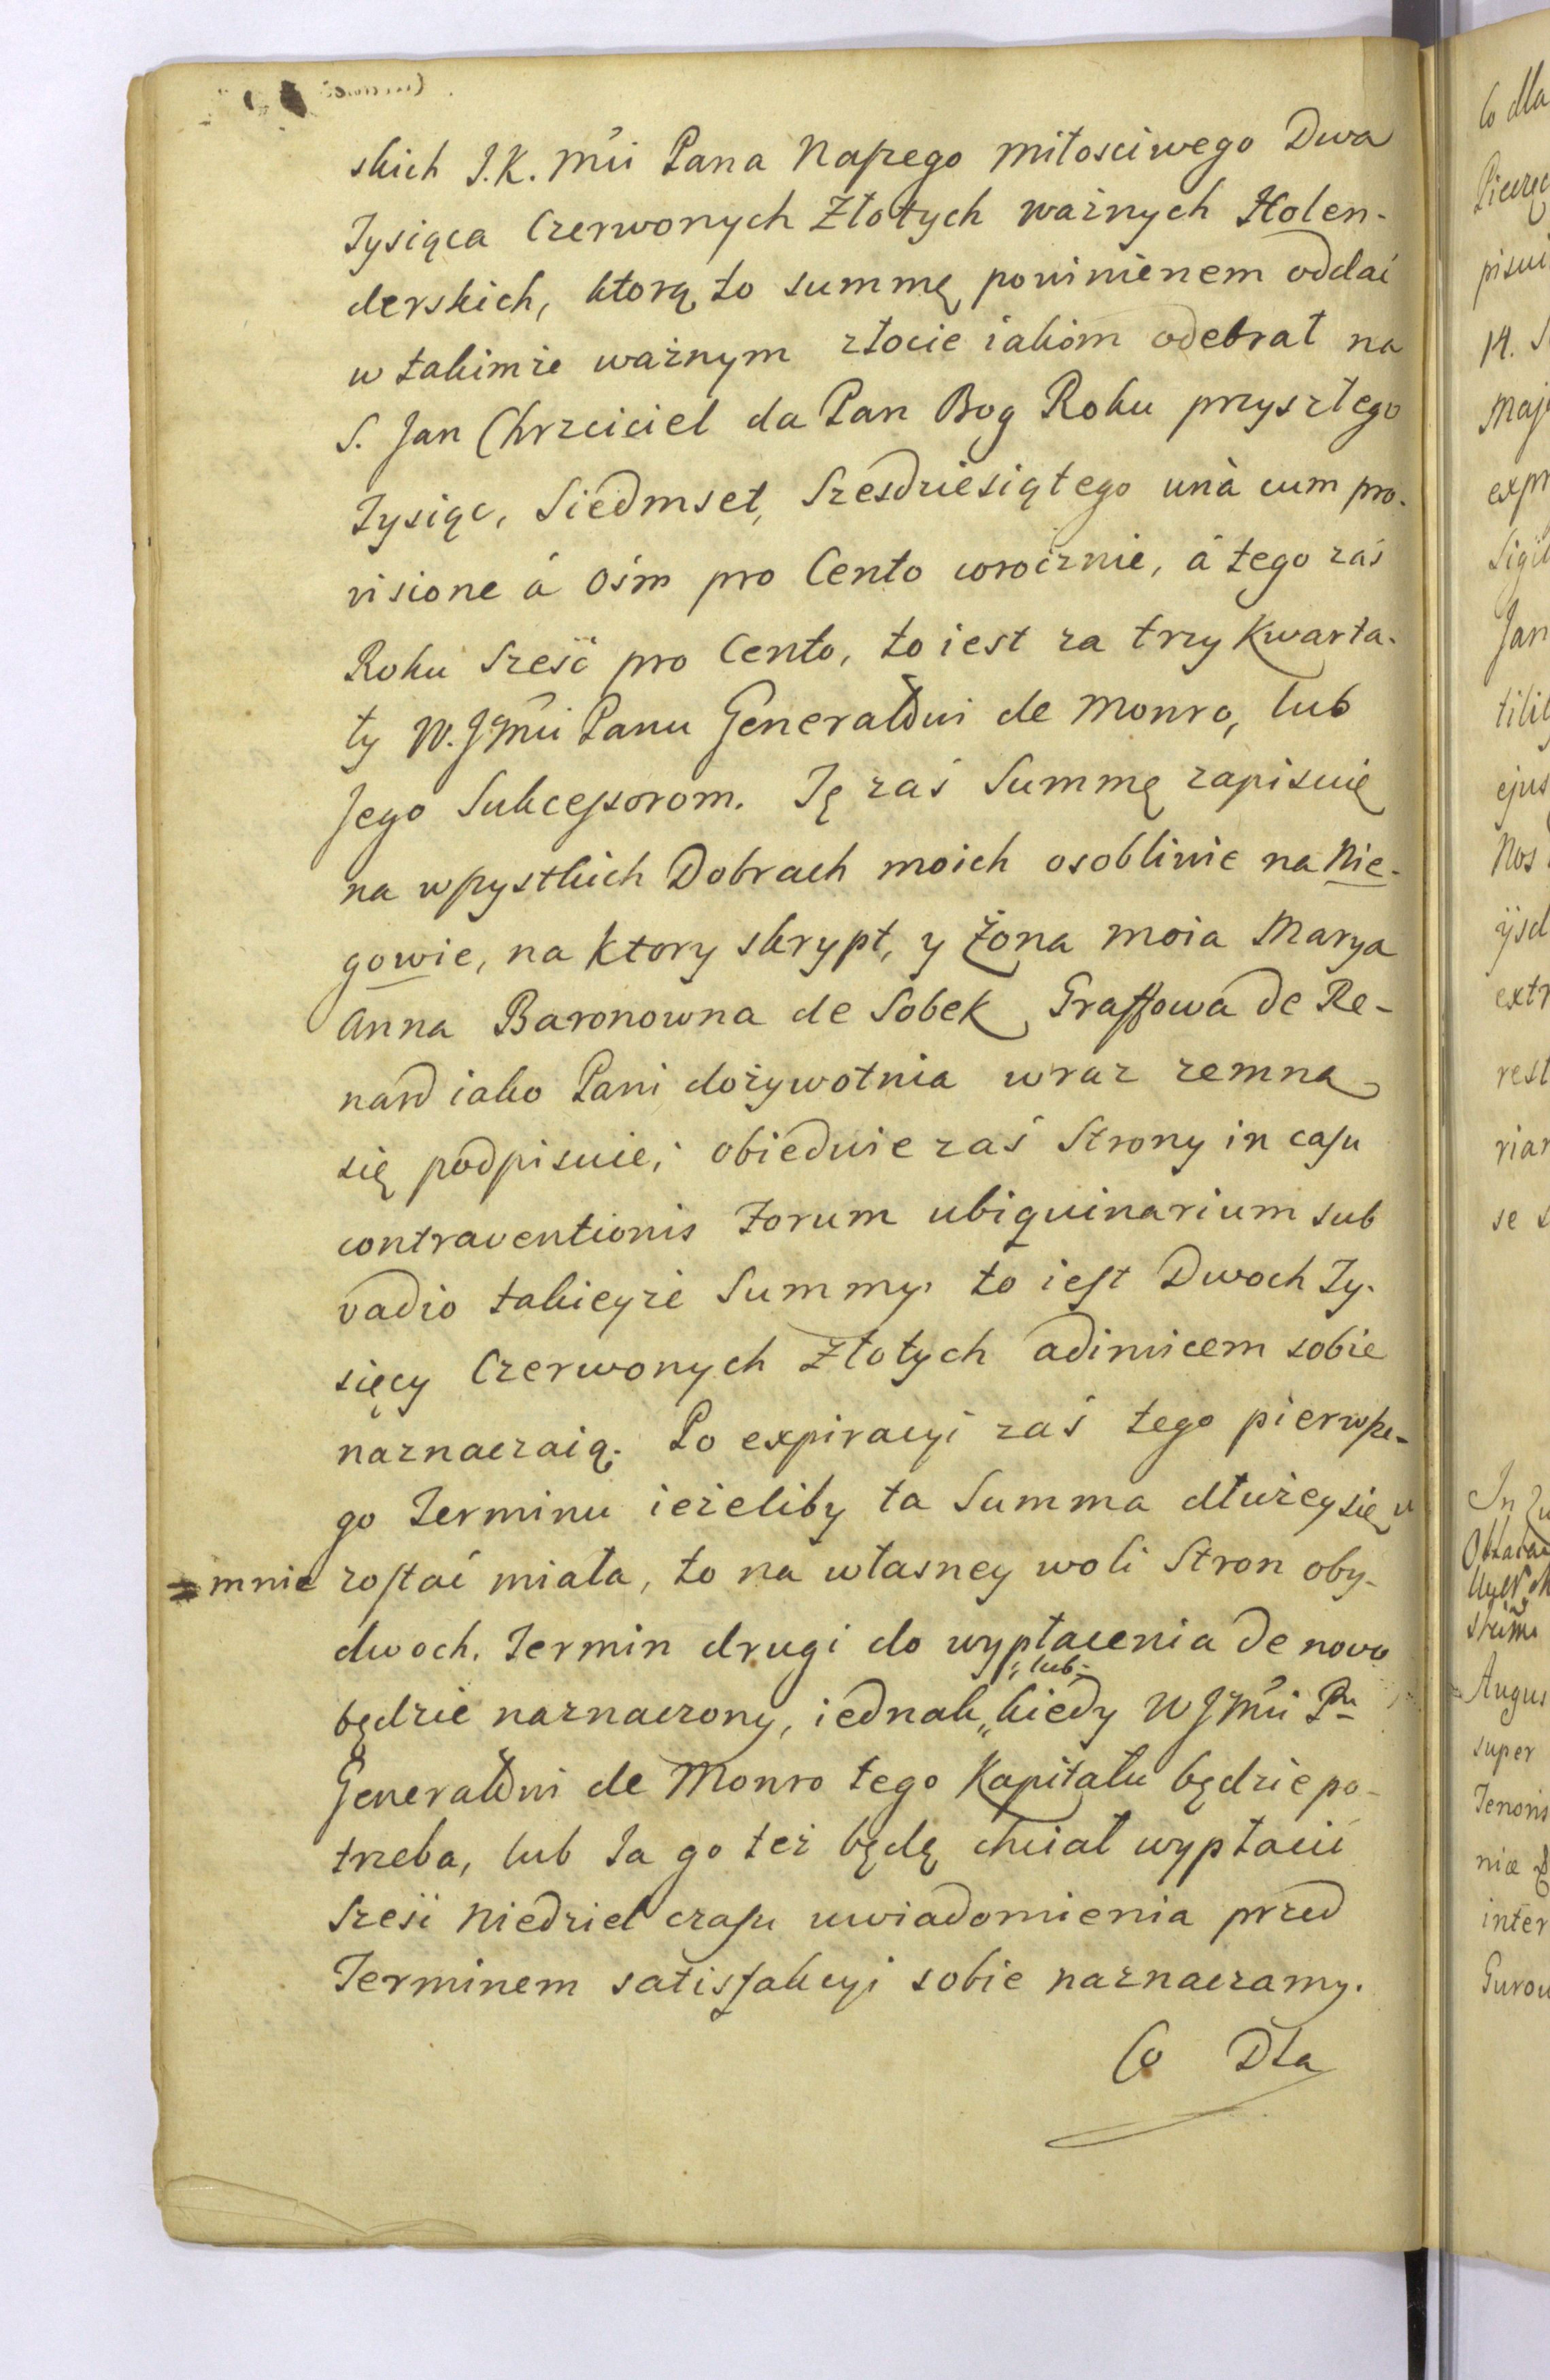 skich J.K. Mći Pana Naszego miłosciwego Dwa
Tysiąca Czerwonych Złotych ważnych Holen-
derskich, ktorą to summę powinienem oddać
w takimże ważnym złocie iakom odebrał na
S. Jan Chrzciciel da Pan Bog Roku przyszłego
Tysiąc, Siedmset, Szesdziesiątego unà cum pro-
visione á Ośm pro Cento worocznie, á tego zaś
Roku Sześć pro Cento, to iest za trzy Kwarta-
ły W. Jmći Panu Generałowi de Monro, lub
Jego Sukcessorom. Tę zaś Summę zapisuię
na wszystkich Dobrach moich osobliwie na Nie-
gowie, na ktory skrypt, y Żona moia Marya
Anna Baronowna de Sobek Graffowa de Re-
nard iako Pani dożywotnia wraz zemną
się podpisuie; obiedwie zaś Strony in casu
contraventionis Forum ubiquinarium sub
vadio takieyże Summy, to iest Dwoch Ty-
sięcy Czerwonych Złotych adinvicem sobie
naznaczaią. Po expiracyi zaś tego pierwsze-
go Terminu ieżeliby ta Summa dłużey się u
mnie zostać miała, to na własney woli Stron oby-
dwoch. Termin drugi do wypłacenia de novo
będzie naznaczony, iednak lub kiedy W Jmći Pu
Generałowi de Monro tego Kapitału będzie po-
trzeba, lub Ja go też będę chciał wypłacić
Sześć Niedziel czasu uwiadomienia przed
Terminem satisfakcyi sobie naznaczamy.
Co Dla